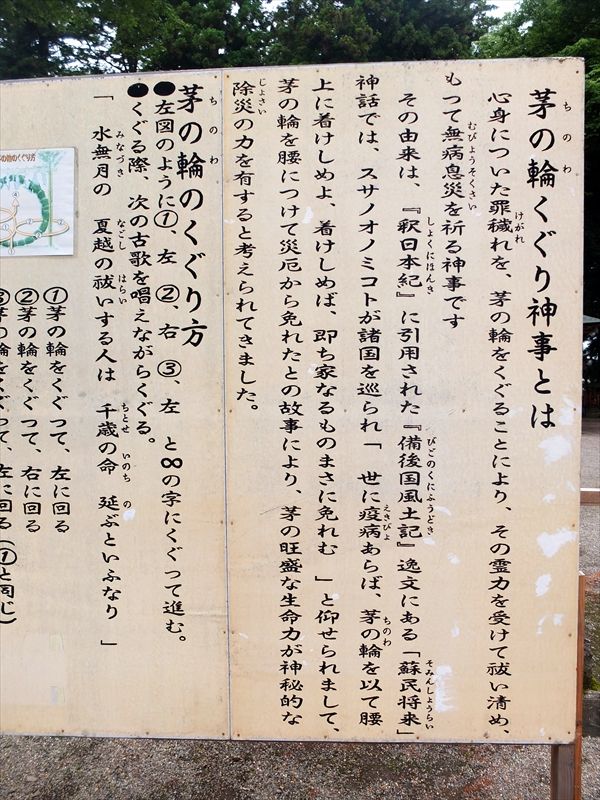 茅の輪くぐり神事とは
ちのわ
心身についた罪穢れを、茅の輪をくぐることにより、その霊力を受けて祓い清め、
けがれ
もつて無病息災を祈る神事です
むびょうそくさい
その由来は、『釈日本紀』に引用された『備後国風土記』逸文にある「蘇民将来」
しょくにほんき
びごのくにふうどき
そみんしょうらい
神話では、スサノオノミコトが諸国を巡られ「世に疫病あらば、茅の輪を以て腰
えきびょ
ちのわ
上に着けしめよ、着けしめば、即ち家なるものまさに免れむ」と仰せられまして、
茅の輪を腰につけて災厄から免れたとの故事により、茅の旺盛な生命力が神秘的な
除災の力を有すると考えられてきました。
じょさい
茅の輪のくぐり方
ちのわ
●左図のように①、左 ②、右 ③、左 と∞の字にくぐつて進む。
●くぐる際、次の古歌を唱えながらくぐる。
「水無月の 夏越の祓いする人は 千歳の命 延ぶといふなり」
みなづき
なごし
はらい
ちとせ
いのち
の
①茅の輪をくぐつて、左に回る
②茅の輪をくぐつて、右に回る
③茅の輪をくぐつて、左に回る(①と同じ)